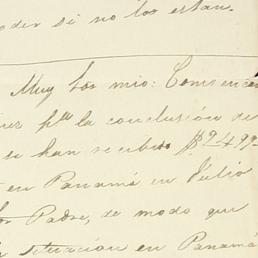 oder si no los estan.
Muy Sor mio: Comienzan
pa la conclusión de
se han recibido $9499
en Panamá en Julio
Sor Padre, de modo que
situación en Panamá